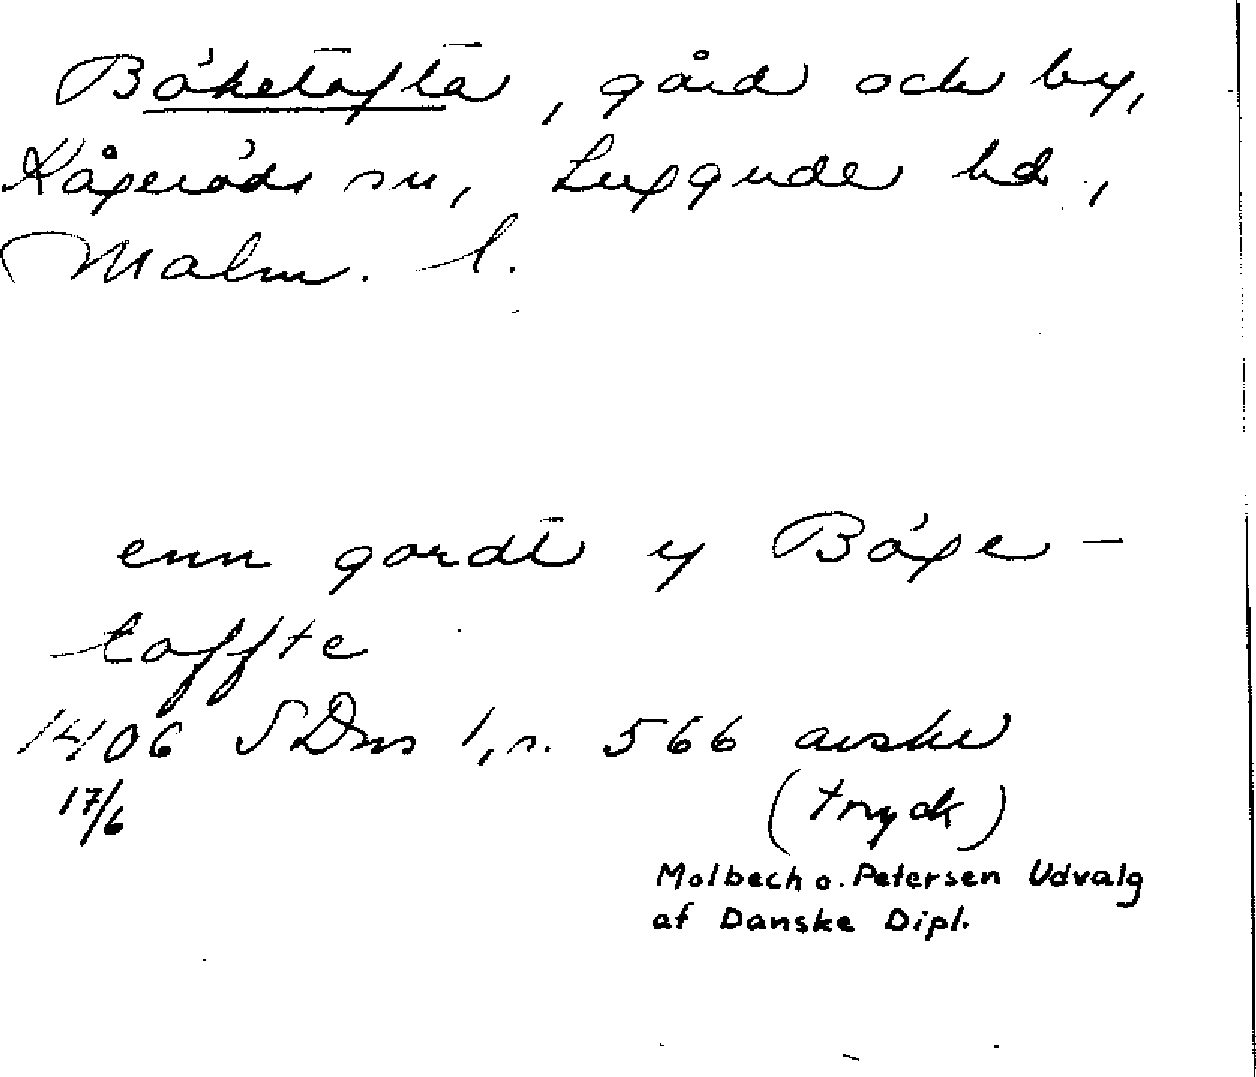 Böketofta, gård och by,
Kågeröds sn, Luggude hd.,
Malm. l.
enn gordt y Böge-
toffte
1406 SDns 1, s. 566 avskr
17/6 (tryck)
Molbech o. Petersen Udvalg
af Danske Dipl.